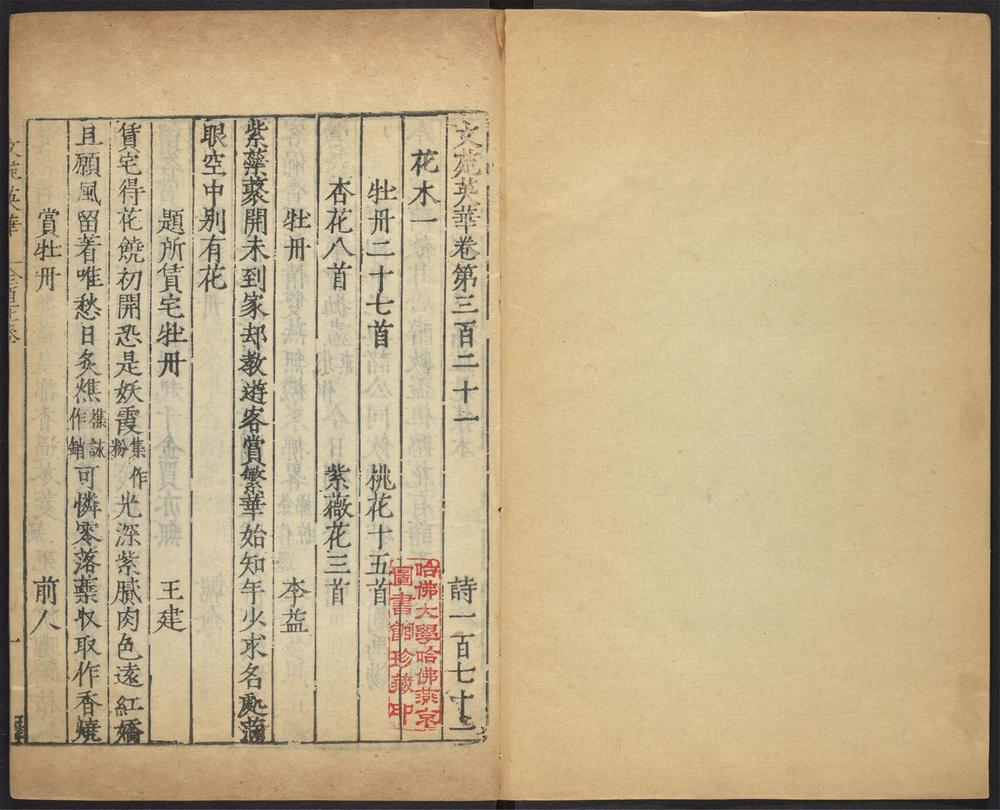 文苑英華卷第三百二十一　詩一百七十一
花木一
牡丹二十七首　桃花十五首
杏花八首　紫薇花三首
牡丹　李益
紫蘂叢開未到家却教遊客賞繁華始知年少求名處滿
眼空中别有花
題所賃宅牡丹　王建
賃宅得花饒初開恐是妖霞集作粉光深紫膩肉色遠紅嬌
且願風留着唯愁日炙燋可憐零落蘂収取作香燒
賞牡丹　前人
哈佛大學哈佛燕京
圖書館珍藏印
文苑英華